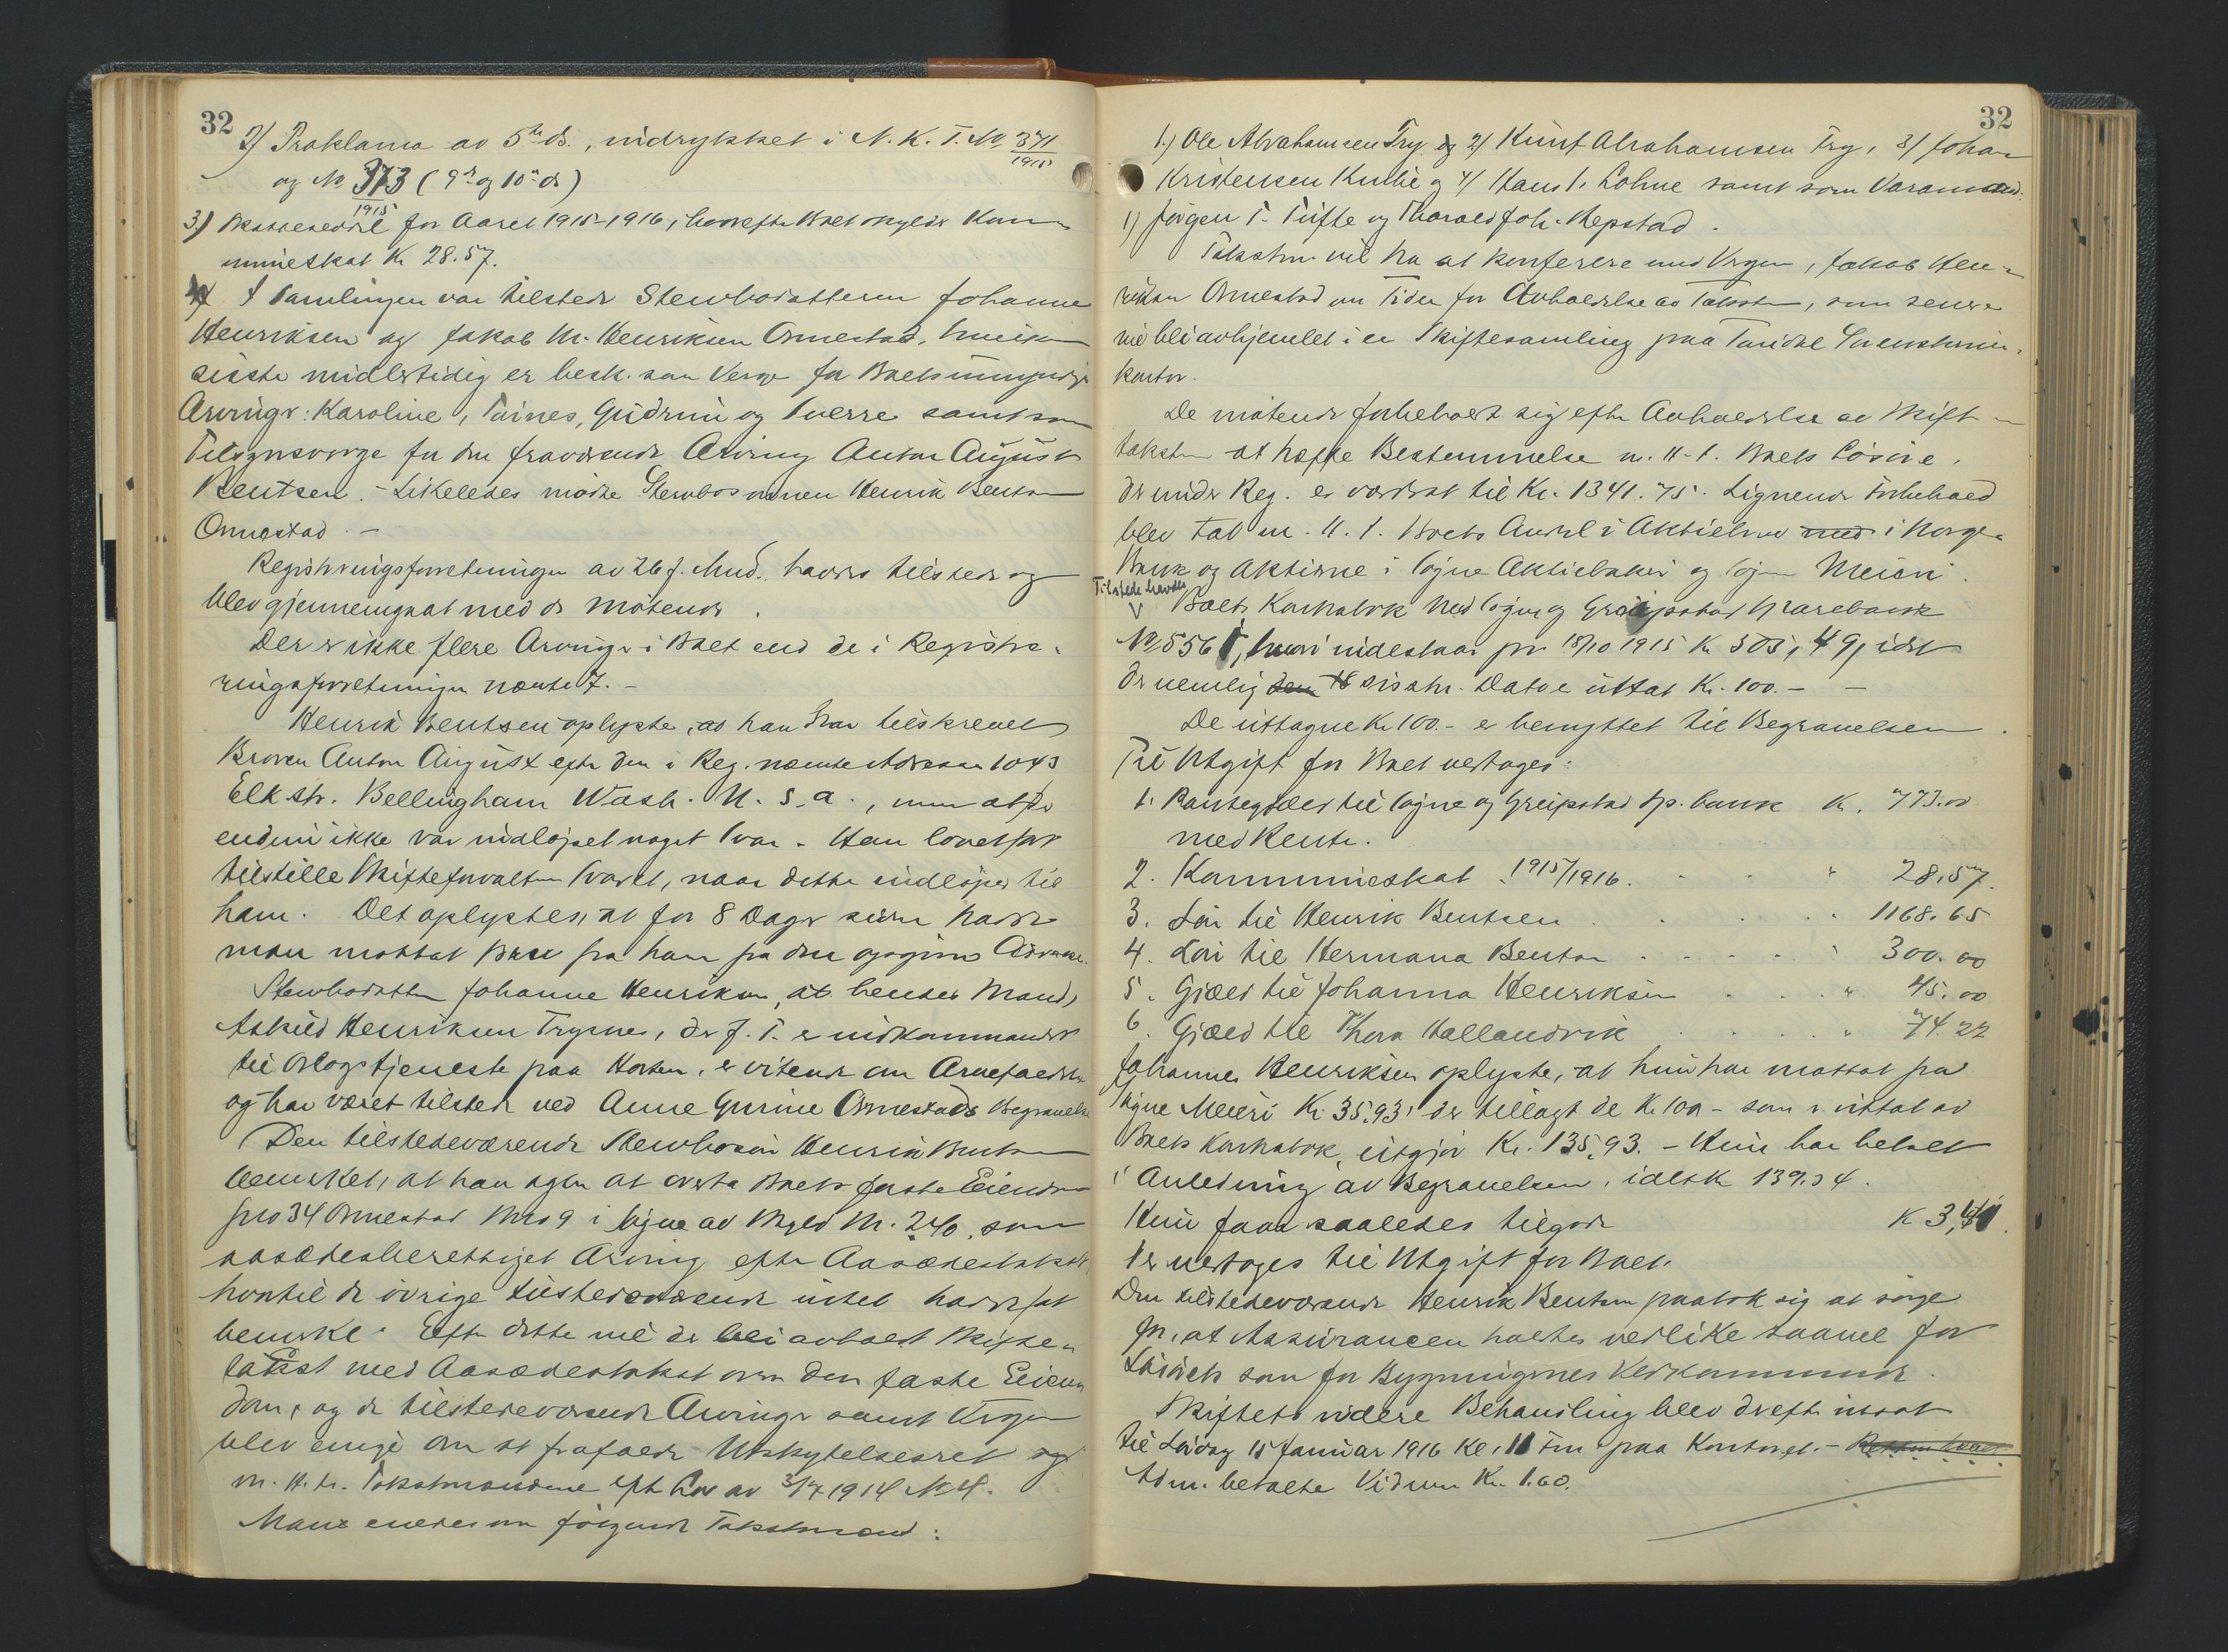 32
2) Proklama av 5te ds., indrykket i N. K. T. No 371/1915
og No 373/1915 (9de og 10de ds)
3.) Skatteseddel for Aaret 1915-1916, hvorefter Boet skylder Kom-
muneskat Kr 28.57.
I Samlingen var tilstede Stervbodatteren Johanne
Henriksen og Jakob M. Henriksen Ormestad, hvilken
sidste midlertidig er besk. som Verge for Boets umyndige
Arvinger: Karoline, Tines, Gudrun og Sverre samt som
Tilsynsverge for den fraværende Arving Anton August
Bentsen. - Likeledes mødte Stervbosønnen Henrik Bentsen
Ormestad. -
Registreringsforretningen av 26 f. Mnd. havdes tilstede og
blev gjennemgaat med de møtende.
Der er ikke flere Arvinger i Boet end de i Registre-
ringsforretningen nævnte 7. -
Henrik Bentsen oplyste, at han har tilskrevet
Broren Anton August efter den i Reg. nævnte Adresse 1043
Elk str. Bellingham Wash. U. S. A., men at der
endnu ikke var indløpet noget Svar. Han lovet at
tilstille Skifteforvalteren Svaret, naar dette indløper til
ham. Det oplystes, at for 8 Dager siden hadde
man mottat Brev fra ham fra den opgivne Adresse.
Stervbodatteren Johanne Henriksen, at hendes Mand,
Askild Henriksen Trysnes, der f. T. er indkommandert
til Orlogstjeneste paa Horten, er vitende om Arvefaldet
og har været tilstede ved Anne Gurine Ormestads Begravelse
Den tilstedeværende Stervbosøn Henrik Bentsen
bemerket, at han agter at overta Boets faste Eiendom
Gno 34 Ormestad Bno 9 i Søgne av Skyld M. 2.40, som
aasædesberettiget Arving efter Aasædestakst,
hvortil de øvrige tilstedeværende intet hadde at
bemerke. Efter dette vil der bli avholdt Skifte-
takst med Aasædestakst over den faste Eien-
dom, og de tilstedeværende Arvinger samt Vergen
blev enige om at frafalde Utskytelsesret og
m. H. t. Takstmændene efter Lov av 3/7 1914 No 4.
Man enedes om følgende Takstmænd:
32
1.) Ole Abrahamsen Try og 2) Knut Abrahamsen Try, 3) Johan
Kristensen Kulie og 4) Hans T. Lohne samt som Varamænd:
1) Jørgen T. Tufte og Tharald Joh. Repstad.
Taksten vil ha at konferere med Vergen, Jakob Hen-
riksen Ormestad om Tiden for Avholdelse av Taksten, som senere
vil bli avhjemlet i en Skiftesamling paa Tinidal Sorenskriver-
kontor.
De møtende forbeholdt sig efter Avholdelse av Skifte-
taksten at træffe Bestemmelse m. H. t. Boets Løsøre,
der under Reg. er værdsat til Kr. 1341.75. Lignende Forbehold
blev tat m. H. t. Boets Andel i Aktielov med i Norges
Bank og Aktierne i Søgne Aktiebakeri og Søgne Meieri.
Tilstede havdes
Boets Kontrabok med Søgne og Greipstad Sparebank
No 5561, hvori indestaar pr 18/10 1915 Kr 503,49, idet
der nemlig den 18 sidstn. Dato er uttat Kr. 100. - -
De uttagne Kr 100.- er benyttet til Begravelsen.
Til Utgift for Boet vedtoges:
1. Pantegjæld til Søgne og Greipstad Sp. bank Kr. 773.00
med Rente.
2. Kommuneskat 1915/1916. " 28.57.
3. Laan til Henrik Bentsen " 1168.65
4. Laan til Hermana Bentsen " 300.00
5. Gjæld til Johanna Henriksen " 45.00
6. Gjæld til Thora Hallandvik " 74.22
Johanne Henriksen oplyste, at hun har mottat fra
Søgne Meieri Kr 35.93, der tillagt de Kr 100 - som er uttat av
Boets Kontrabok, utgjør Kr. 135,93. - Hun har betalt
i Anledning av Begravelsen, ialt Kr 139.34.
Hun faar saaledes tilgode Kr 3,41.
der vedtoges til Utgift for Boet.
Den tilstedeværende Henrik Bentsen paatok sig at sørge
for, at Assurancen holdes vedlike saavel for
Løsørets som for Bygningernes Vedkommende.
Skiftets videre Behandling blev derefter utsat
til Lørdag 15 Januar 1916 Kl. 11 Fm paa Kontoret. - Retten hævet
Adm. betalte Vidnern Kr. 1.60.